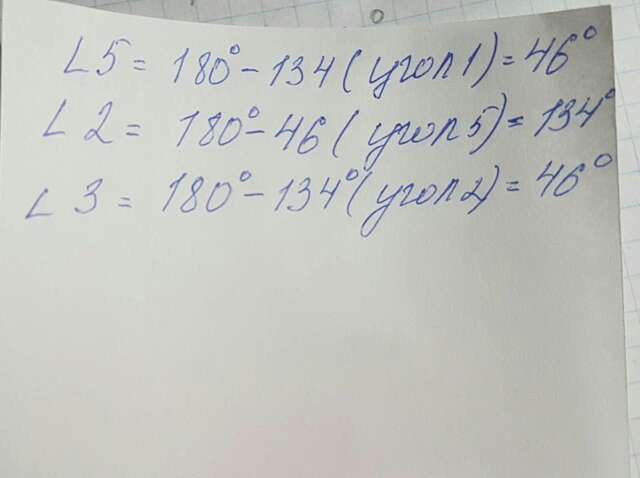 ∠5 = 180° - 134 (угол 1) = 46°
∠2 = 180° - 46 (угол 5) = 134°
∠3 = 180° - 134° (угол 2) = 46°